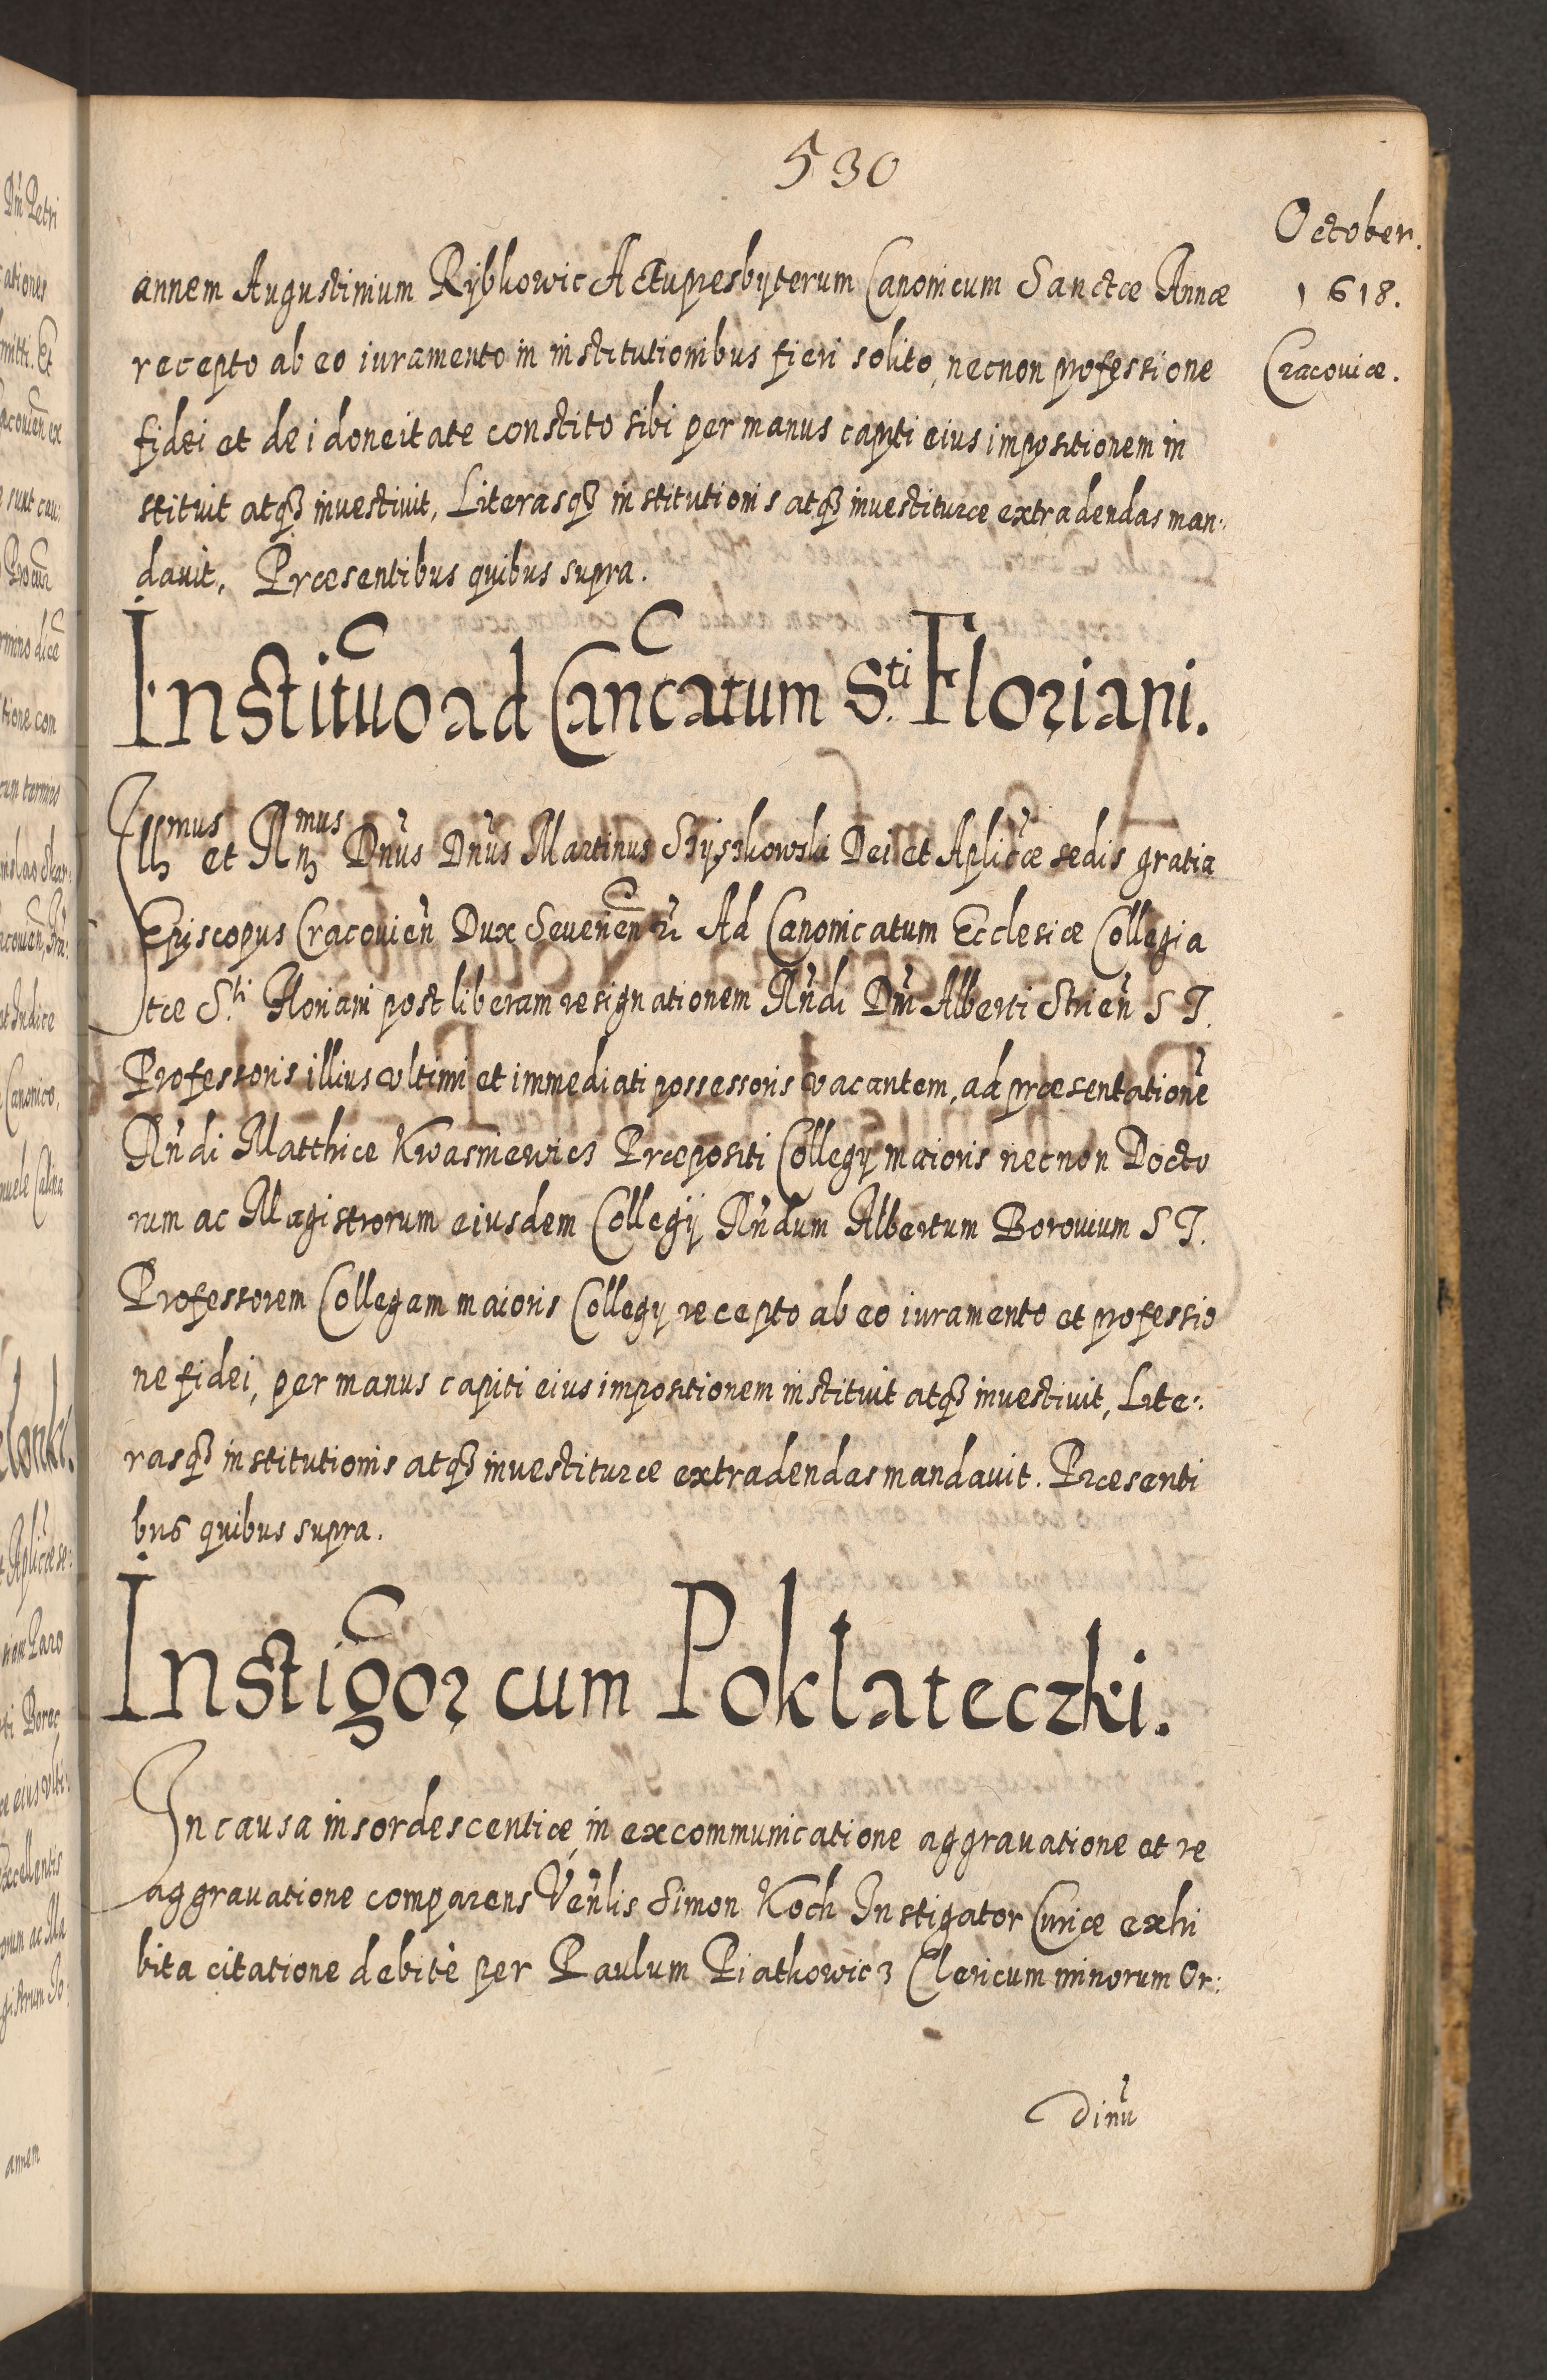 530
October.
1618.
Cracouiæ.
annem Augustinium Rybkowic Actupresbyterum Canonicum Sanctæ Annæ
recepto ab eo iuramento in institutionibus fieri solito, necnon professione
fidei et de idoneitate constito sibi per manus capiti eius impositionem in
stituit atqꝫ inuestiuit, Literasqꝫ institutionis atqꝫ inuestituræ extradendas man:
dauit. Præsentibus quibus supra.
Institu͠o ad Can͠catum S.ti Floriani.
Illmus et Rnmus Dn̄us Dn̄us Martinus Szyszkowski Dei et Aplicæ sedis gratia
Episcopus Cracouien̄ Dux Seuerien̄ Ad Canonicatum Ecclesiæ Collegia
tæ S.ti Floriani post liberam resignationem Rn̄di Dn̄i Alberti Strien̄ S T.
Professoris illius vltimi et immediati possessoris vacantem, ad præsentationē
Rn̄di Matthiæ Kwasniewicz Præpositi Collegij maioris necnon Docto
rum ac Magistrorum eiusdem Collegij Rn̄dum Albertum Borouium S T.
Professorem Collegam maioris Collegij recepto ab eo iuramento et professio
ne fidei, per manus capiti eius impositionem instituit atqꝫ inuestiuit, Lite:
rasqꝫ institutionis atqꝫ inuestituræ extradendas mandauit. Præsenti
bus quibus supra.
Instig͠or cum Poklateczki.
In causa insordescentiæ, in excommunicatione aggrauatione et re
aggrauatione comparens Ven̄lis Simon Koch Instigator Curiæ exhi
bita citatione debitè per Paulum Piatkowicz Clericum minorum Or:
dinū